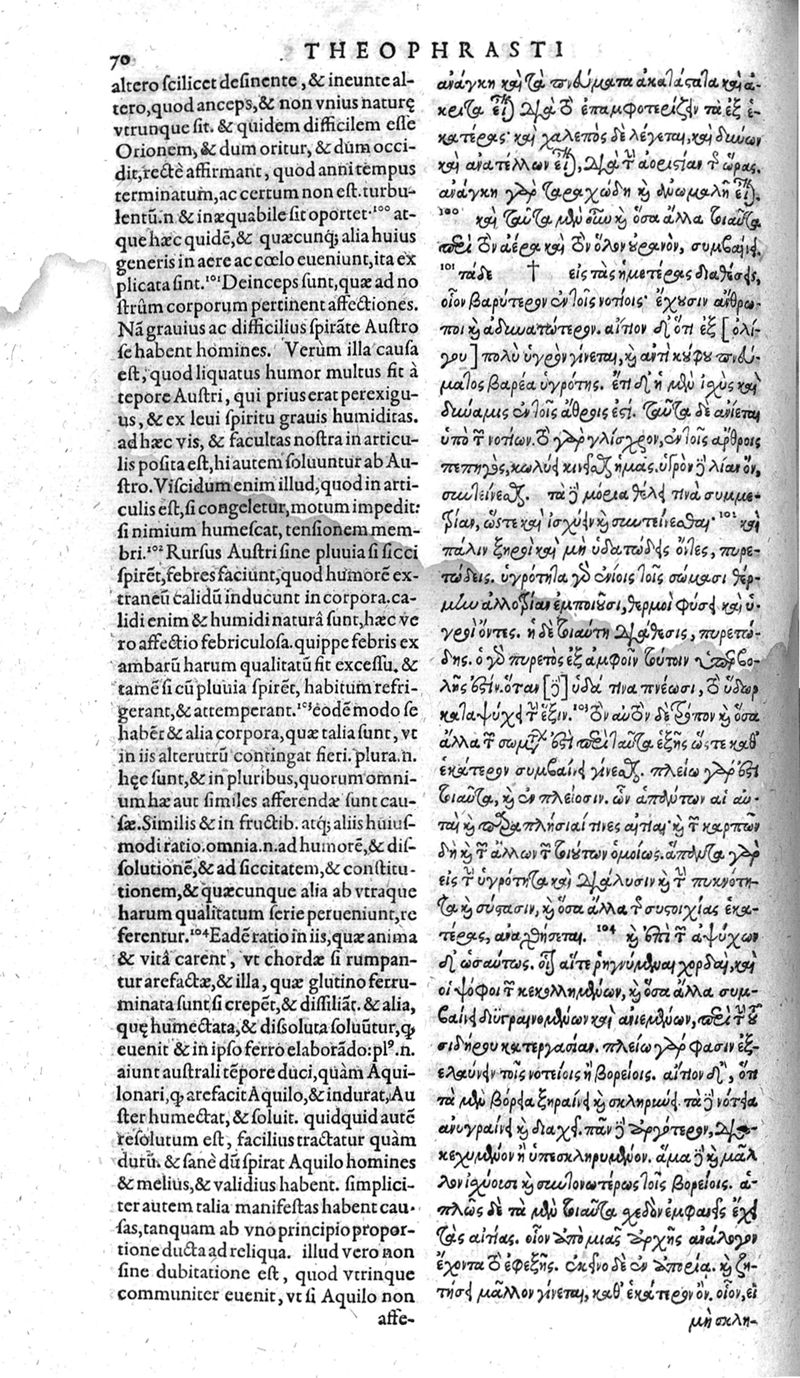 70
THEOPHRASTI
altero scilicet desinente, & ineunte al-
tero, quod anceps, & non vnius naturę
vtrunque sit. & quidem difficilem esse
Orionem, & dum oritur, & dum occi-
dit, rectè affirmant, quod anni tempus
terminatum, ac certum non est. turbu-
lentũ.n. & inæquabile sit oportet.¹⁰⁰ at-
que hæc quidẽ, & quæcunq; alia huius
generis in aere ac cœlo eueniunt, ita ex
plicata sint.¹⁰¹ Deinceps sunt, quæ ad no
strûm corporum pertinent affectiones.
Nã grauius ac difficilius spirãte Austro
se habent homines. Verùm illa causa
est, quod liquatus humor multus fit à
tepore Austri, qui prius erat perexigu-
us, & ex leui spiritu grauis humiditas.
ad hæc vis, & facultas nostra in articu-
lis posita est, hi autem soluuntur ab Au-
stro. Viscidum enim illud, quod in arti-
culis est, si congeletur, motum impedit:
si nimium humescat, tensionem mem-
bri.¹⁰² Rursus Austri sine pluuia si sicci
spirẽt, febres faciunt, quod humorẽ ex-
traneũ calidũ inducunt in corpora. ca-
lidi enim & humidi naturâ sunt, hæc ve
ro affectio febriculosa. quippe febris ex
ambarũ harum qualitatũ fit excessu, &
tamẽ si cũ pluuia spirẽt, habitum refri-
gerant, & attemperant.¹⁰³ eodẽ modo se
habẽt & alia corpora, quæ talia sunt, vt
in iis alterutrũ contingat fieri. plura.n.
hęc sunt, & in pluribus, quorum omni-
um hæ aut similes afferendæ sunt cau-
sæ. Similis & in fructib. atq; aliis huiuſ-
modi ratio. omnia.n. ad humorẽ, & dis-
solutionẽ, & ad siccitatem, & constitu-
tionem, & quæcunque alia ab vtraque
harum qualitatum serie perueniunt, re
ferentur.¹⁰⁴ Eadẽ ratio in iis, quæ anima
& vitâ carent, vt chordæ si rumpan-
tur arefactæ, & illa, quæ glutino ferru-
minata sunt, si crepẽt, & dissiliãt. & alia,
quę humectata, & dissoluta soluũtur, ꝙ
euenit & in ipso ferro elaborãdo: plꝰ.n.
aiunt australi tẽpore duci, quàm Aqui-
lonari, ꝙ arefacit Aquilo, & indurat, Au
ster humectat, & soluit. quidquid autẽ
resolutum est, facilius tractatur quàm
durũ. & sanè dũ spirat Aquilo homines
& melius, & validius habent. simplici-
ter autem talia manifestas habent cau-
sas, tanquam ab vno principio propor-
tione ducta ad reliqua. illud vero non
sine dubitatione est, quod vtrinque
communiter euenit, vt si Aquilo non
affe-
ἀνάγκη καὶ τὰ πνεύματα ἀκατάστατα καὶ ἄ-
κριτα εἶναι, διὰ τὸ ἐπαμφοτερίζειν τὰ ἐξ ἑ-
κατέρας· καὶ χαλεπὸς δὲ λέγεται, καὶ δύνων
καὶ ἀνατέλλων εἶναι, διὰ τὴν ἀοριστίαν τῆς ὥρας.
ἀνάγκη γὰρ ταραχώδη καὶ ἀνώμαλη εἶναι.
¹⁰⁰ καὶ ταῦτα μὲν οὖν καὶ ὅσα ἄλλα τοιαῦτα
περὶ τὸν ἀέρα καὶ τὸν ὅλον οὐρανὸν, συμβαίνει.
¹⁰¹ τάδε † εἰς τὰς ἡμετέρας διαθέσεις,
οἷον βαρύτερον ἐν τοῖς νοτίοις ἔχουσιν ἄνθρω-
ποι καὶ ἀδυνατώτερον. αἴτιον δ' ὅτι ἐξ [ὀλί-
γου] πολὺ ὑγρὸν γίνεται, καὶ ἀντὶ κούφου πνεύ-
ματος βαρέα ὑγρότης. ἔτι δ' ἡ μὲν ἰσχὺς καὶ
δύναμις ἐν τοῖς ἄθροις ἐστί. ταῦτα δὲ ἀνίεται
ὑπὸ τῶν νοτίων. τὸ γὰρ γλίσχρον, ἐν τοῖς ἄρθροις
πεπηγὸς, κωλύει κινεῖσθαι ἡμᾶς. ὑγρὸν δὲ λίαν ὂν,
συντείνεσθαι. τὰ δὲ μόρια θέλει τινὰ συμμε-
τρίαν, ὥστε καὶ ἰσχύειν καὶ συντείνεσθαι. ¹⁰² καὶ
πάλιν ξηροὶ καὶ μὴ ὑδατώδεις ὄντες, πυρε-
τώδεις. ὑγρότητα γὰρ ἐνίοις τοῖς σώμασι θερ-
μὴν ἀλλοτρίαν ἐμποιοῦσι, θερμοὶ φύσει καὶ ὑ-
γροὶ ὄντες. ἡ δὲ τοιαύτη διάθεσις, πυρετώ-
δης. ὁ γὰρ πυρετὸς ἐξ ἀμφοῖν τούτοιν ὑπερβο-
λῆς ἐστίν. ὅταν [δὲ] ὑδά τινα πνέωσι, τὸ ὕδωρ
καταψύχει τὴν ἕξιν. ¹⁰³ τὸν αὐτὸν δὲ τρόπον καὶ ὅσα
ἄλλα τῶν σωμάτων ἐστὶ περὶ ταῦτα ἑξῆς ὥστε καθ'
ἑκάτερον συμβαίνει γίνεσθαι. πλείω γάρ ἐστι
τοιαῦτα, καὶ ἐν πλείοσιν. ὧν ἁπάντων αἱ αὐ-
ταὶ καὶ παραπλήσιαί τινες αἰτίαι. καὶ τῶν καρπῶν
δὴ καὶ τῶν ἄλλων τῶν τοιούτων ὁμοίως. ἅπαντα γὰρ
εἰς τὴν ὑγρότητα καὶ διάλυσιν καὶ τὴν πυκνότη-
τα καὶ σύστασιν, καὶ ὅσα ἄλλα τῆς συστοιχίας ἑκα-
τέρας, ἀναχθήσεται. ¹⁰⁴ καὶ ἐπὶ τῶν ἀψύχων
δ' ὡσαύτως. οἷον αἵ τε ῥηγνύμεναι χορδαὶ, καὶ
οἱ ψόφοι τῶν κεκολλημένων, καὶ ὅσα ἄλλα συμ-
βαίνει διϋγραινομένων καὶ ἀνιεμένων, περὶ τὴν τοῦ
σιδήρου κατεργασίαν. πλείω γάρ φασιν ἐξ-
ελαύνειν τοῖς νοτείοις ἢ βορείοις. αἴτιον δ', ὅτι
τὰ μὲν βόρεια ξηραίνει καὶ σκληρύνει. τὰ δὲ νότεια
ἀνυγραίνει καὶ διαχεῖ. πᾶν δὲ εὐεργότερον, δια-
κεχυμένον ἢ ὑπεσκληρυμένον. ἅμα δὲ καὶ μᾶλ-
λον ἰσχύουσι καὶ συντονωτέρως τοῖς βορείοις. ἁ-
πλῶς δὲ τὰ μὲν τοιαῦτα σχεδὸν ἐμφανεῖς ἔχει
τὰς αἰτίας. οἷον ἀπὸ μιᾶς ἀρχῆς ἀνάλογον
ἔχοντα τὸ ἐφεξῆς. ἐκεῖνο δὲ ἐν ἀπορίᾳ. καὶ ζη-
τήσει μᾶλλον γίνεται, καθ' ἑκάτερον ὄν. οἷον, εἰ
μὴ σκλη-